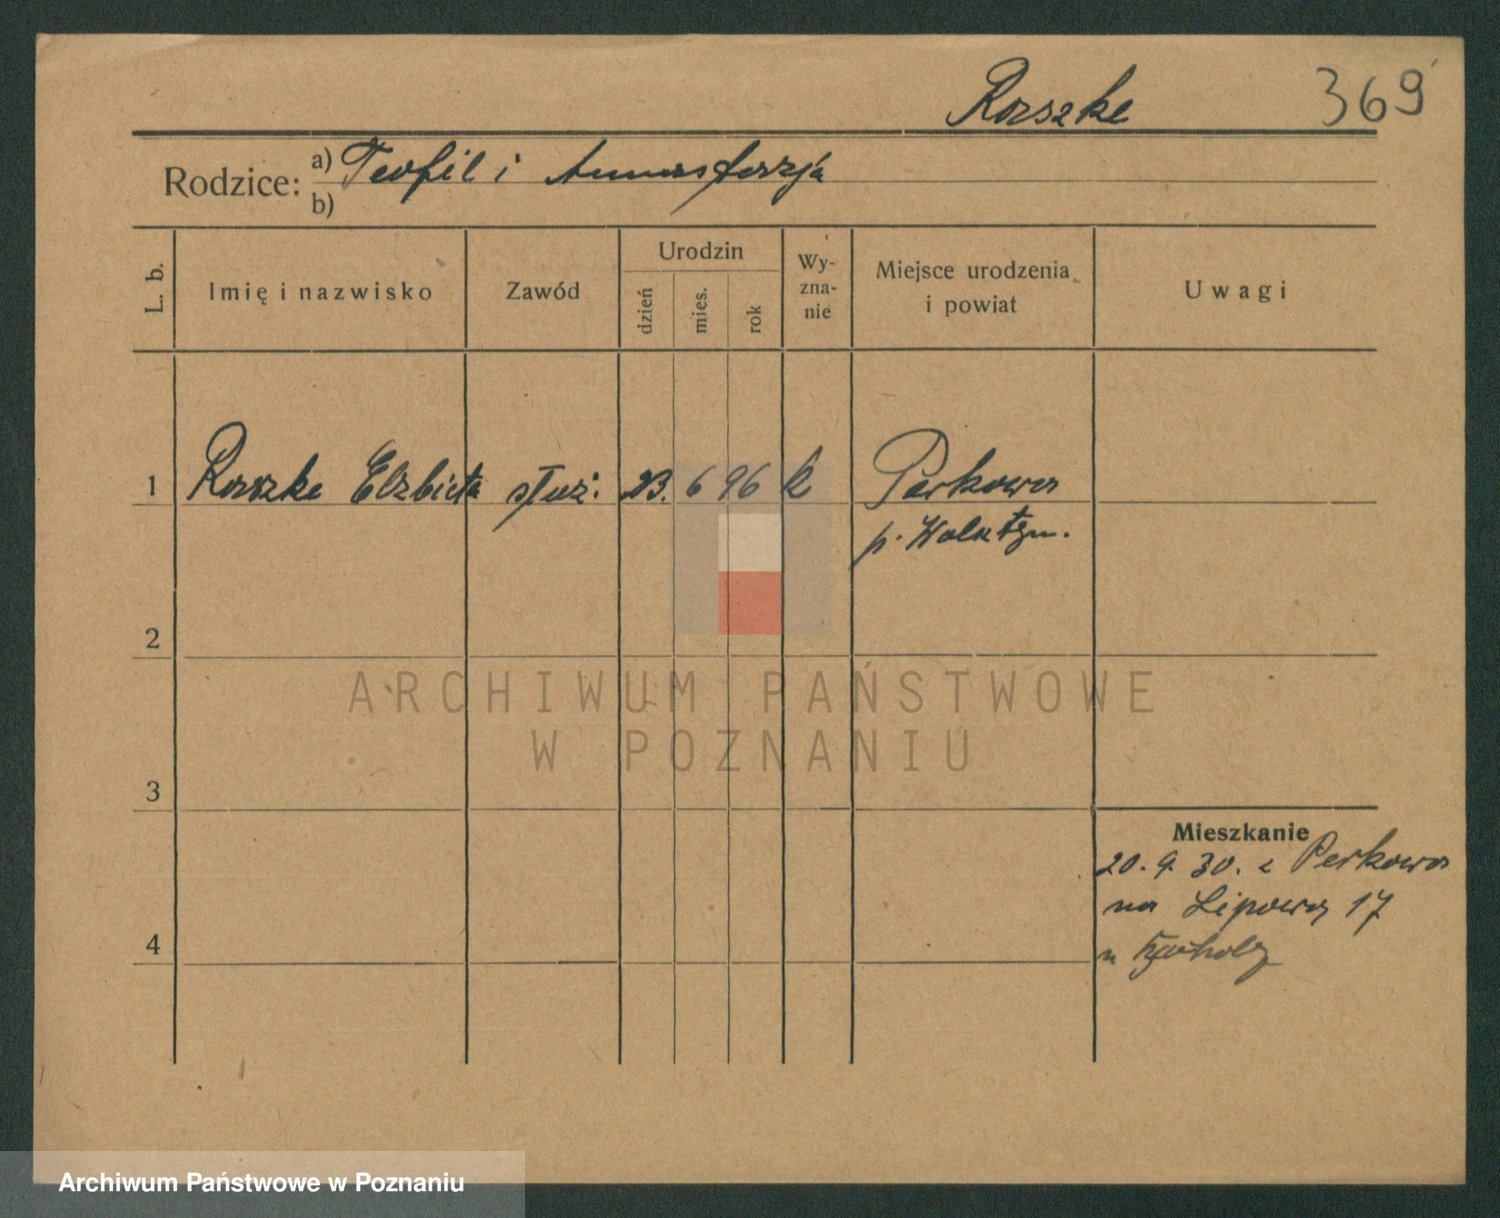 Roszke 369
Rodzice: a) Teofil i
b)
L. b. Imię i nazwisko Zawód Urodzin dzień mies. rok Wy-zna-nie Miejsce urodzenia i powiat Uwagi
1 Roszke Elzbieta służ. 23. 6 96 k Perkowo
p. Wolsztyn.
2
ARCHIWUM PAŃSTWOWE
W POZNANIU
3
Mieszkanie
20. 9. 30. z Perkowa
na Lipowa 17
4 u
Archiwum Państwowe w Poznaniu